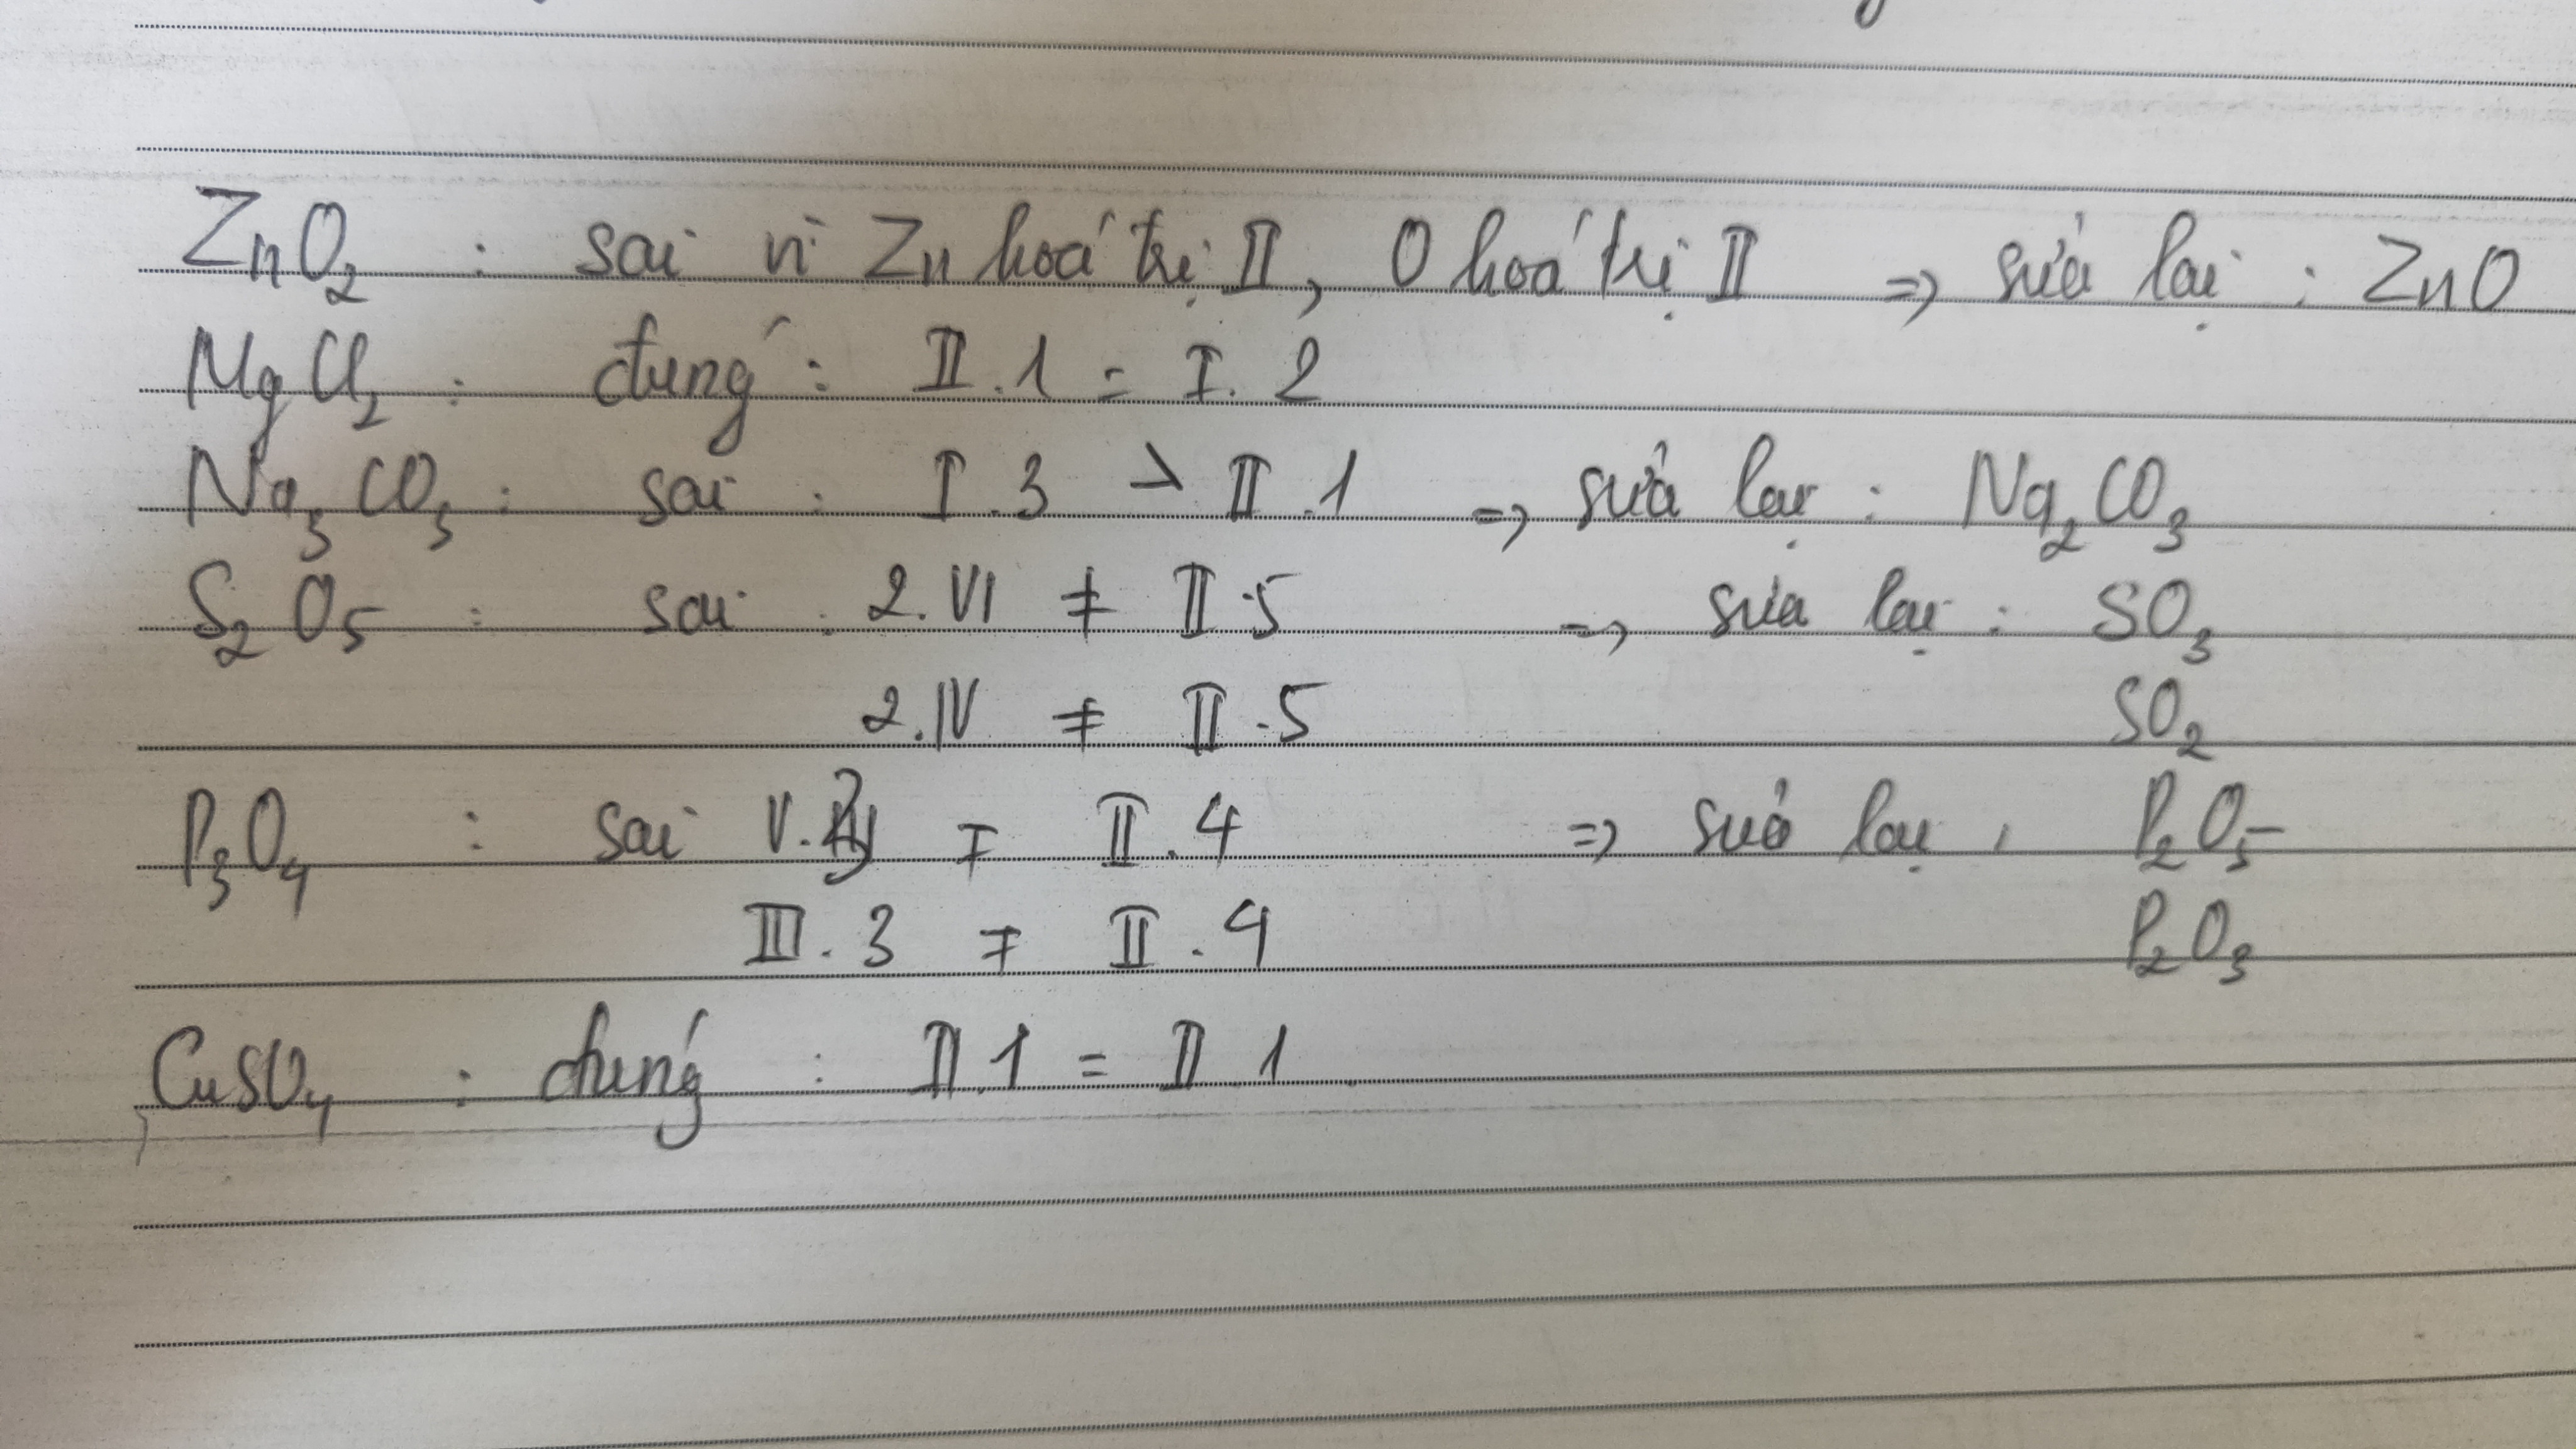 ZnO₂ : sai vì Zn hoá trị II, O hoá trị II => sửa lại : ZnO
MgCl₂ : đúng : II.1 = I.2
Na₃CO₃ : sai : I.3 > II.1 => sửa lại : Na₂CO₃
S₂O₅ : sai : 2.VI ≠ II.5 => sửa lại : SO₃
2.IV ≠ II.5 SO₂
P₃O₄ : sai V. ≠ II.4 => sửa lại : P₂O₅
III.3 ≠ II.4 P₂O₃
CuSO₄ : đúng : II.1 = II.1